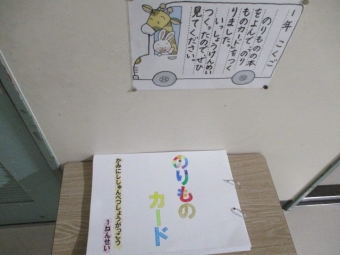 一年 こくご
のりものの本
をよんで、のり
ものカードをつく
りました。
いっしょうけんめい
つくったのでぜひ
見てください。
のりもの
カード
かみにししゅんべつしょうがっこう
1ねんせい